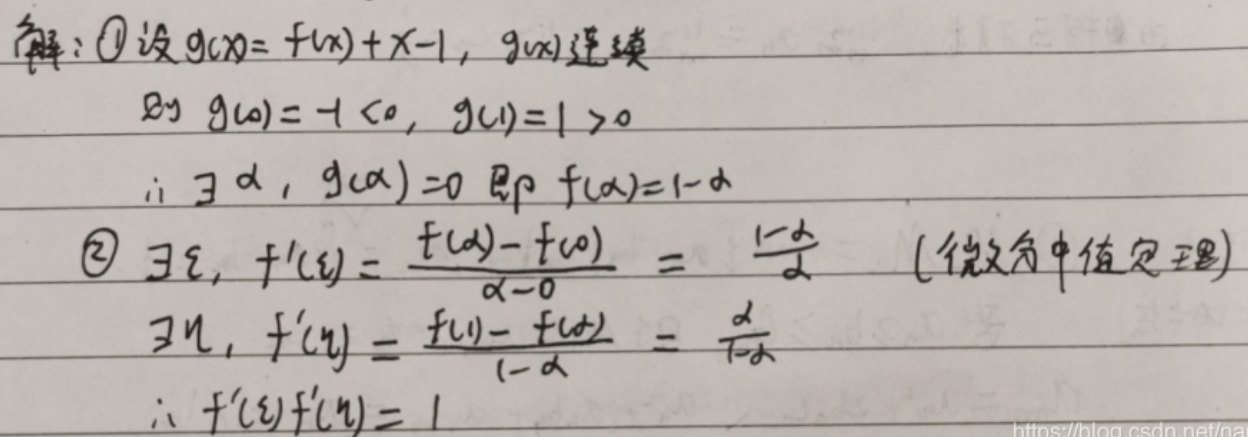 解：① 设 g(x) = f(x) + x - 1，g(x)连续
则 g(0) = -1 < 0，g(1) = 1 > 0
∴ ∃ α，g(α) = 0 即 f(α) = 1 - α
② ∃ ξ，f'(ξ) = \frac{f(α) - f(0)}{α - 0} = \frac{1-α}{α} （微分中值定理）
∃ η，f'(η) = \frac{f(1) - f(α)}{1 - α} = \frac{α}{1-α}
∴ f'(ξ)f'(η) = 1
https://blog.csdn.net/na